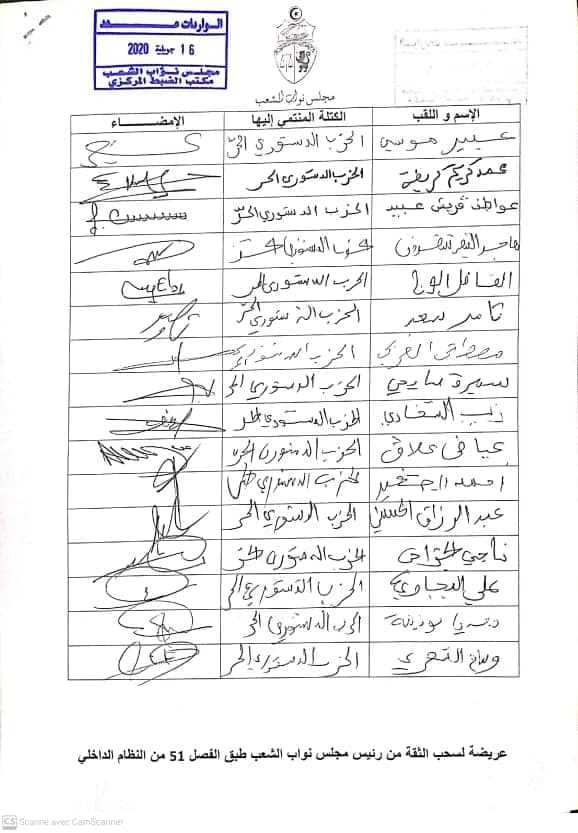 الواردات عـــدد
16 جويلية 2020
مجلس نواب الشعب
مكتب الضبط المركزي
مجلس نواب الشعب
الإسم و اللقب الكتلة المنتمي إليها الإمضـــاء
عبير موسي الحزب الدستوري الحرّ
محمد كريم كريفة الحزب الدستوري الحر
عواطف قريش عبيد الحزب الدستوري الحرّ
هاجر النيفر شقرون حزب الدستوري حر
الفاضل الوج الحزب الدستوري الحر
ثامر سعد الحزب الدستوري الحرّ
مصطفى الحزب الدستوري
سميرة سايحي الحزب الدستوري الحر
زينب السفاري الحزب الدستوري الحر
عياض علاق الحزب الدستوري الحر
أحمد الصغير الحزب الدستوري الحر
عبد الرزاق الحسين الحزب الدستوري الحر
ناجي الجراحي الحزب الدستوري الحر
علي البجاوي الحزب الدستوري الحر
بودينة الحزب الدستوري الحر
وسام الشعري الحزب الدستوري الحر
عريضة لسحب الثقة من رئيس مجلس نواب الشعب طبق الفصل 51 من النظام الداخلي
CS Scanné avec CamScanner